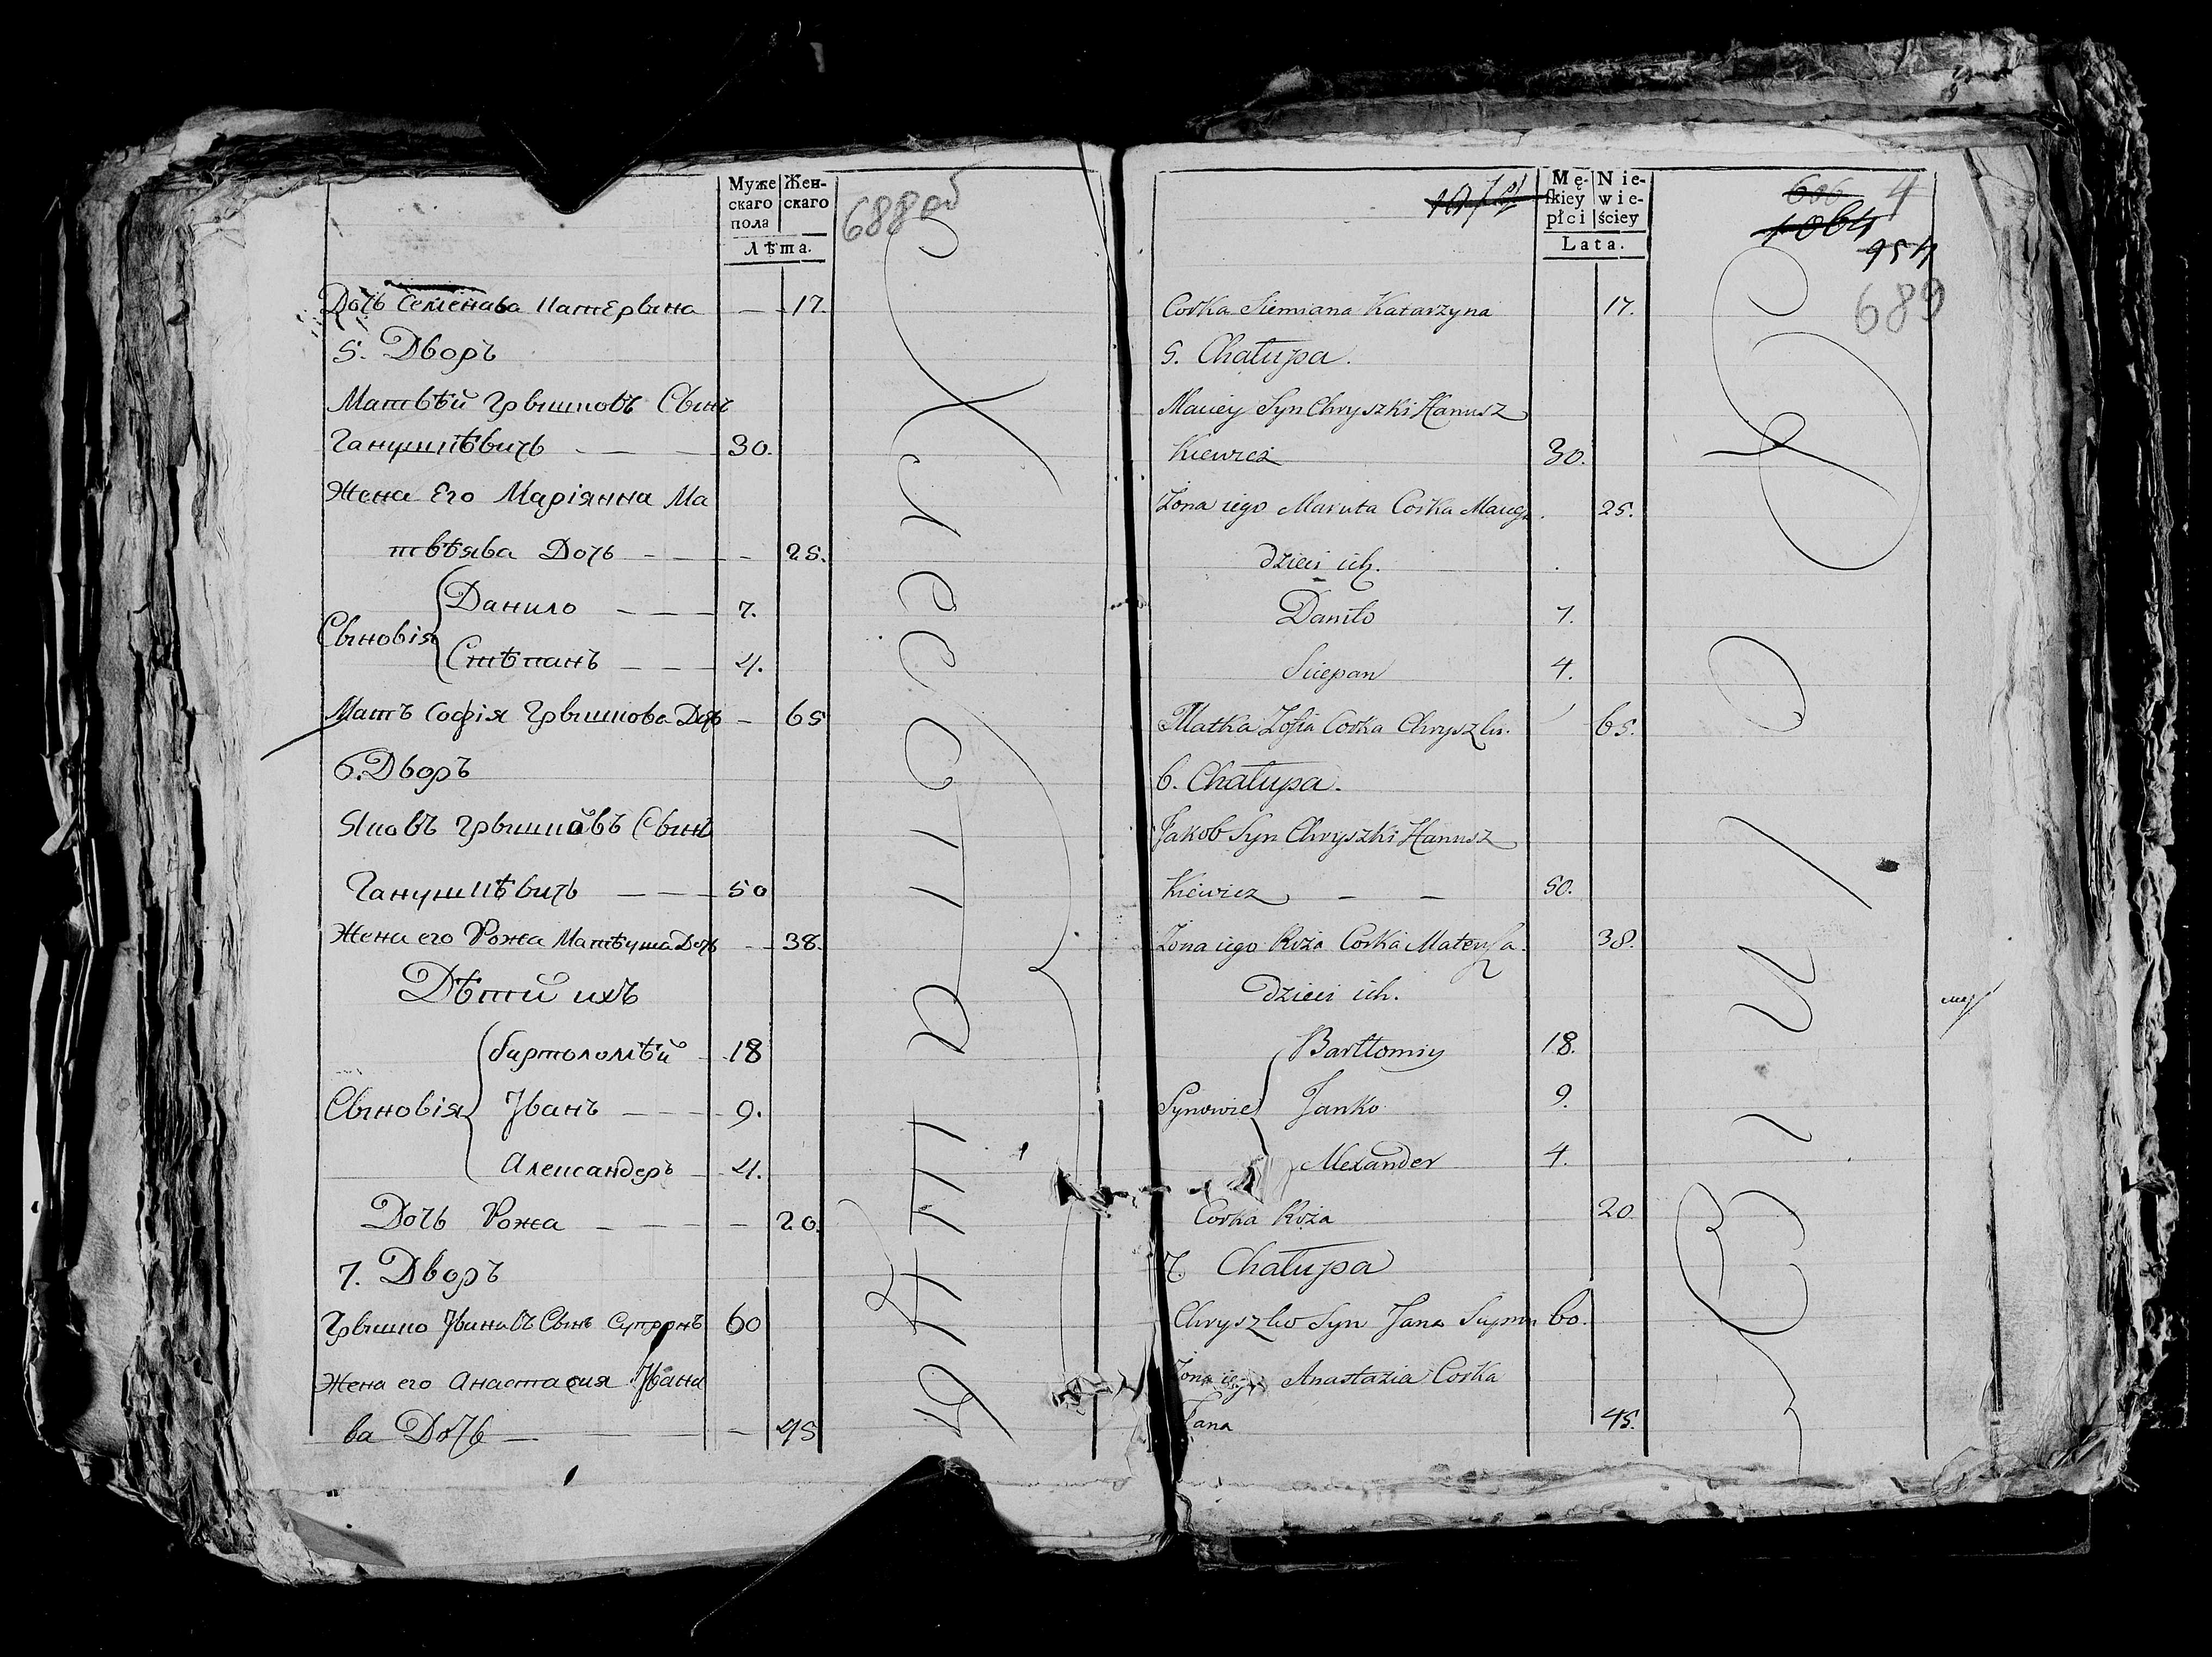 Муже
скаго
пола
Жен-
скаго
Лѣта.
688 об
Дочь Семенава Катерына — 17.
5. Дворъ
Матвѣй Грышковъ Сынъ
Ганушкѣвичь — — 30.
Жена Его Маріянна Ма
твѣява Дочь — — 25.
Сыновія
Данило — — 7.
Стѣпанъ — — 4.
Мать Софія Грышкова Дочь — 65
6. Дворъ
Яковъ Грышковъ Сынъ
Ганушкѣвичь — — 50
Жена его Рожа Матѣуша Дочь — 38.
Дѣтй ихъ
Сыновія
бартоломѣй 18
Іванъ — — 9.
Александеръ 4.
Дочь Рожа — — — 20.
7. Дворъ
Грышко Іванавъ Сынъ Супронъ 60
Жена его Анастасия Івана
ва Дочь — — — 45
Mę-
skiey
płci
Nie-
wie-
ściey
Lata.
606 4
1064
954
689
Corka Siemiana Katarzyna 17.
5. Chałupa.
Maciey Syn Chryszki Hanusz
Kiewicz 30.
Żona iego Maruta Corka Macieja. 25.
dzieci ich.
Daniło 7.
Sciepan 4.
Matka Zofia Corka Chryszki. 65.
6. Chałupa.
Jakob Syn Chryszki Hanusz
Kiewicz — — 50.
Żona iego Roża Corka Mateusza. 38.
dzieci ich.
Synowie
Bartłomiy 18.
Janko 9.
Alexander 4.
Corka Roża 20
7. Chałupa
Chryszko Syn Jana Supron 60.
Żona iego Anastazia Corka
Jana 45.